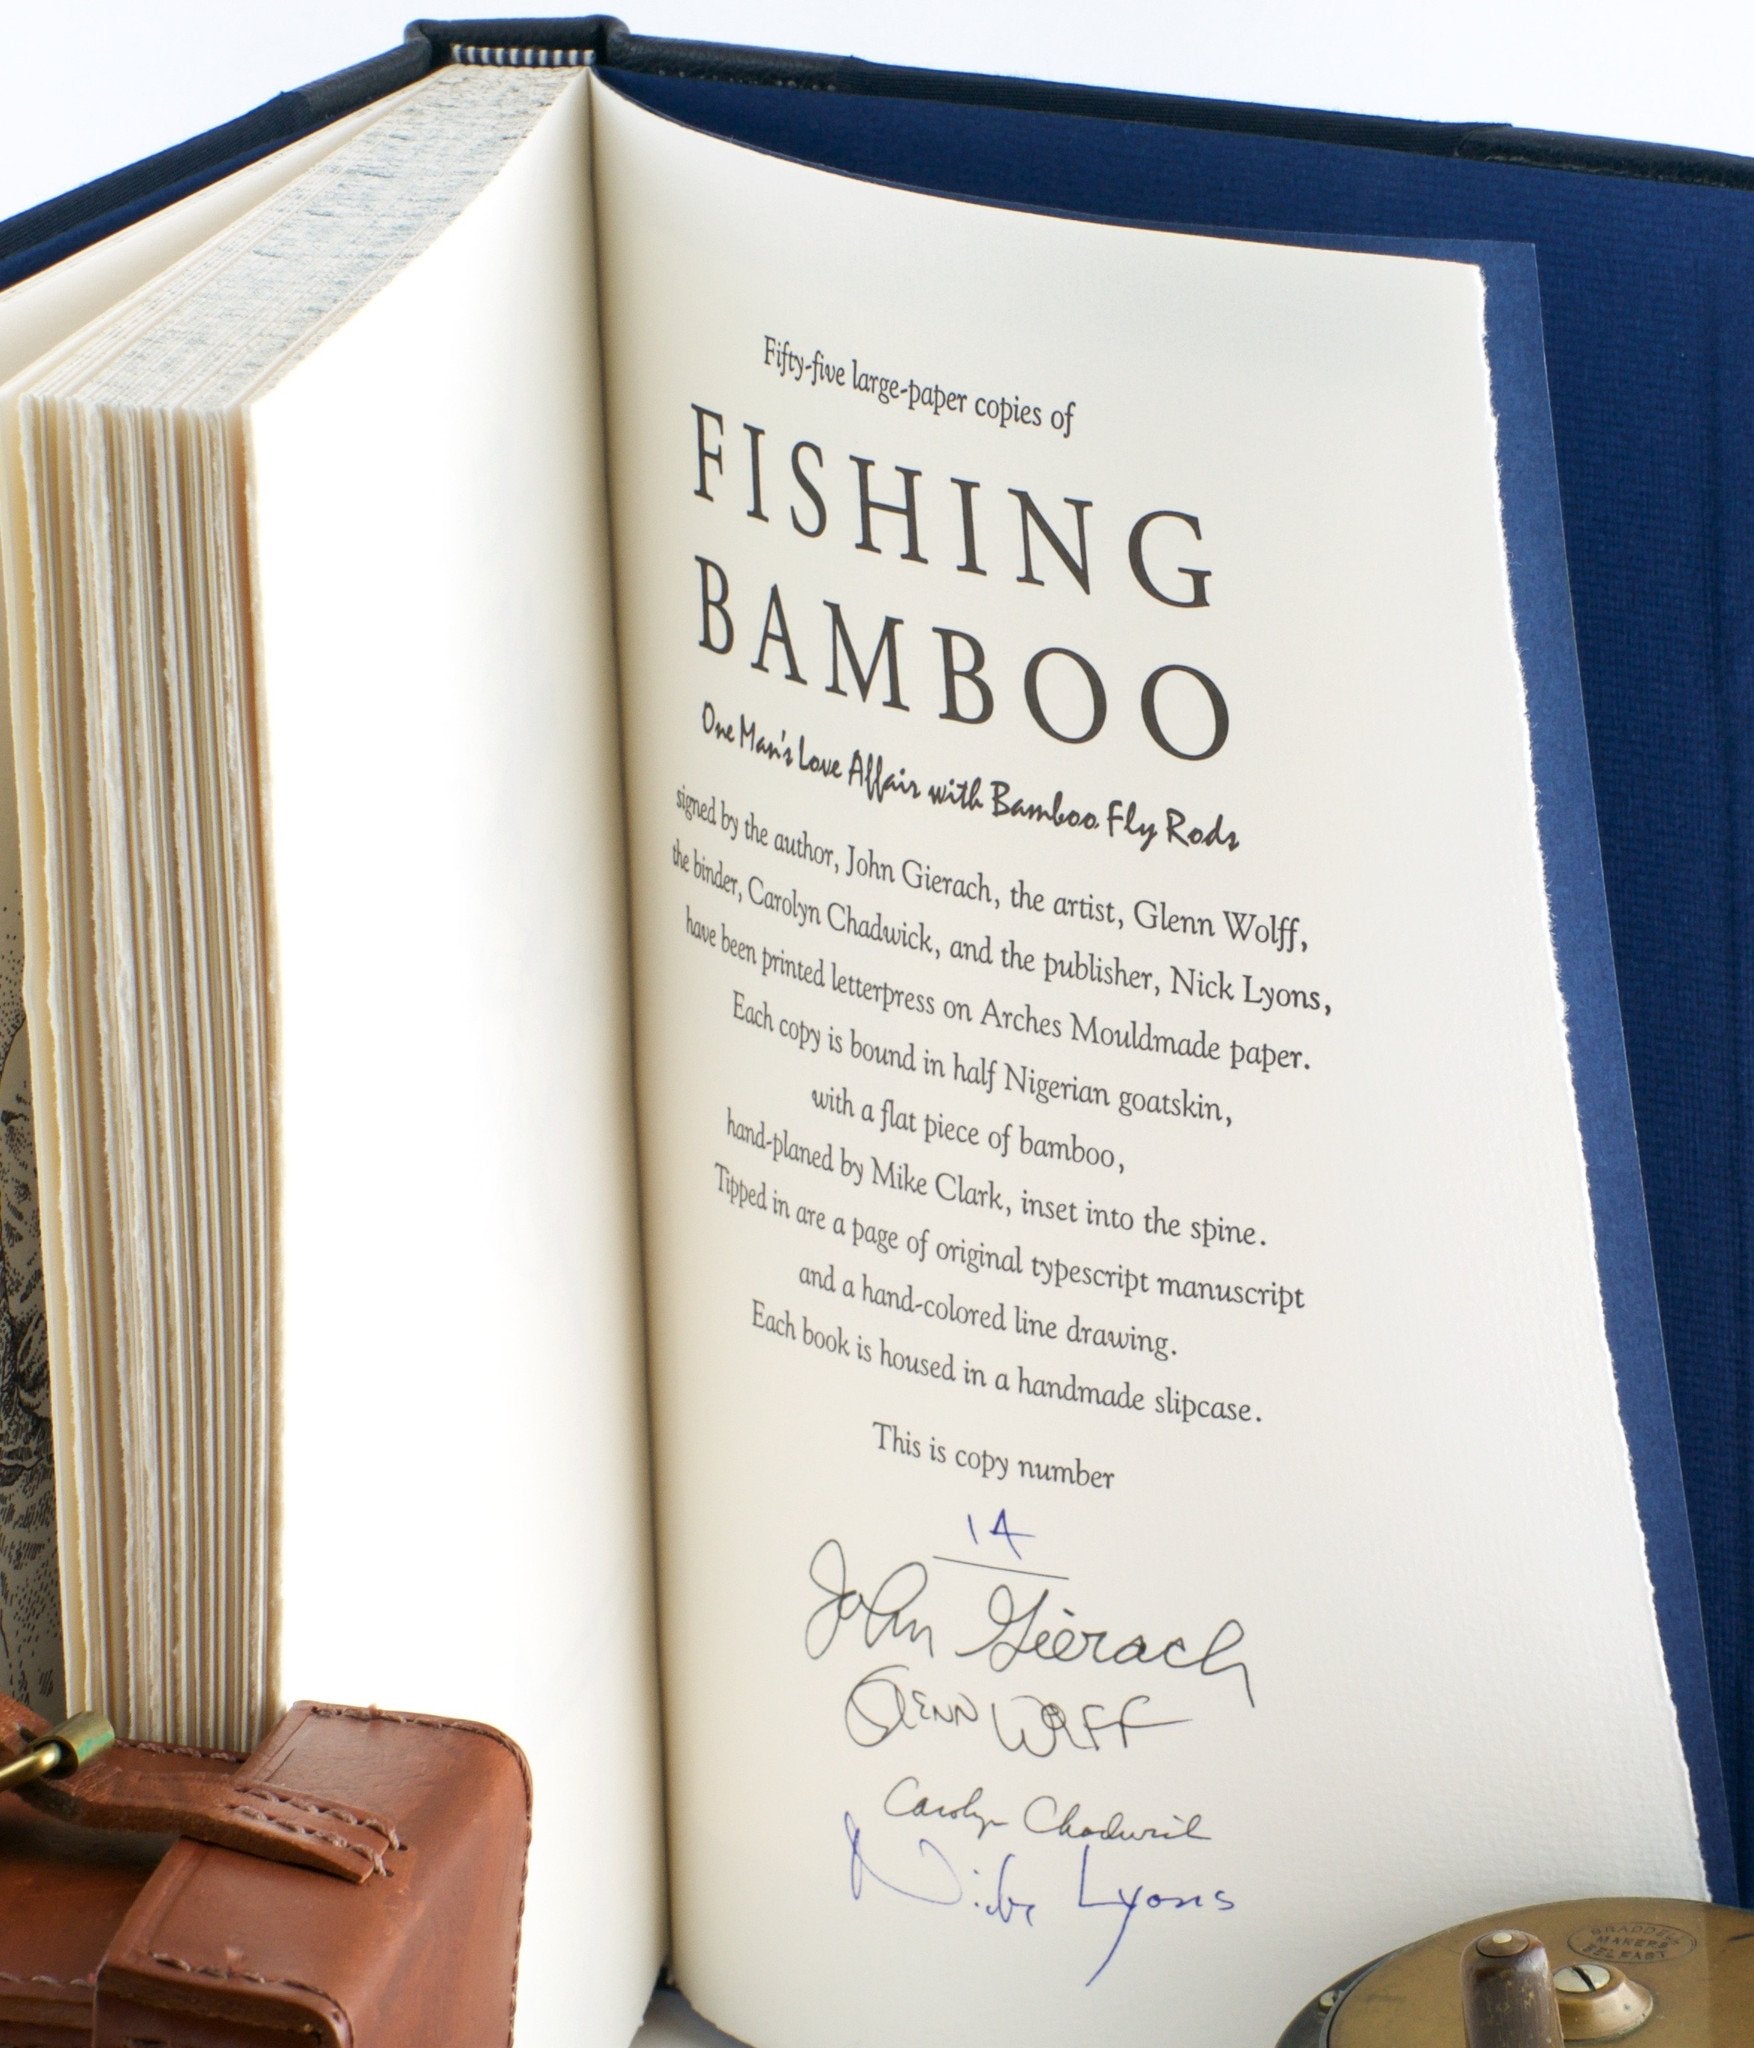 Fifty-five large-paper copies of
FISHING
BAMBOO
One Man's Love Affair with Bamboo Fly Rods
signed by the author, John Gierach, the artist, Glenn Wolff,
the binder, Carolyn Chadwick, and the publisher, Nick Lyons,
have been printed letterpress on Arches Mouldmade paper.
Each copy is bound in half Nigerian goatskin,
with a flat piece of bamboo,
hand-planed by Mike Clark, inset into the spine.
Tipped in are a page of original typescript manuscript
and a hand-colored line drawing.
Each book is housed in a handmade slipcase.
This is copy number
14
John Gierach
GLENN WOLFF
Carolyn Chadwick
Nick Lyons
MAKERS
BELFAST